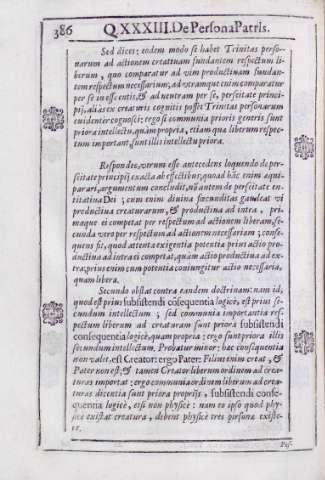 386 Q.XXXIII. De Persona Patris.
Sed dices; eodem modo se habet Trinitas perso-
narum ad actionem creatiuam fundantem respectum li-
berum, quo comparatur ad vim productiuam fundan-
tem respectum necessarium, ad vtramque enim comparatur
per se in essentis, & ad neutram per se, perseitate princi-
pij, ali&s ex creaturis cognitis posset Trinitas personarum
euidenter cognosci; ergo si communia prioris generis sunt
priora intellectu, quàm propria, etiam qua liberum respec-
tum important, sunt illis intellectu priora.
Respondeo, verum esse antecedens loquendo de per-
seitate principij exacta ab effectibus, quoad hâc enim aqui-
parari, argumentum concludit, nõ autem de perseitate en-
titatina Dei; cum enim diuina fœcunditas gaudeat vi
productiua creaturarum, & productiua ad intra, pri-
maque ei competat per respectum ad actionem liberam, se-
cunda vero per respectum ad actionem necessariam; conse-
quens fit, quod attenta exigentia potentia prius actio pro-
ductiua ad intra ei competat, quàm actio productiua ad ex-
tra; prius enim cum potentia coniungitur actio necessaria,
quam libera.
Secundo obstat contra eandem doctrinam: nam id,
quod est prius subsistendi cõsequentia logicè, est prius se-
cundum intellectum; sed communia importantia res-
pectum liberum ad creaturam sunt priora subsistendi
consequentia logicè, quam propria: ergo sunt priora illis
secundum intellectum. Probatur minor: hæc consequentia
non valet, est Creator: ergo Pater: Filius enim creat, &
Pater non est; & tamen Creator liberum ordinem ad crea-
turas importat: ergo communia ordinem liberum ad crea-
turas dicentia sunt priora proprijs, subsistendi conse-
quentia logicè, etsi non physicè: nam eo ipso quod phy-
sicè existat creatura, debent physicè tres personæ existe-
re.